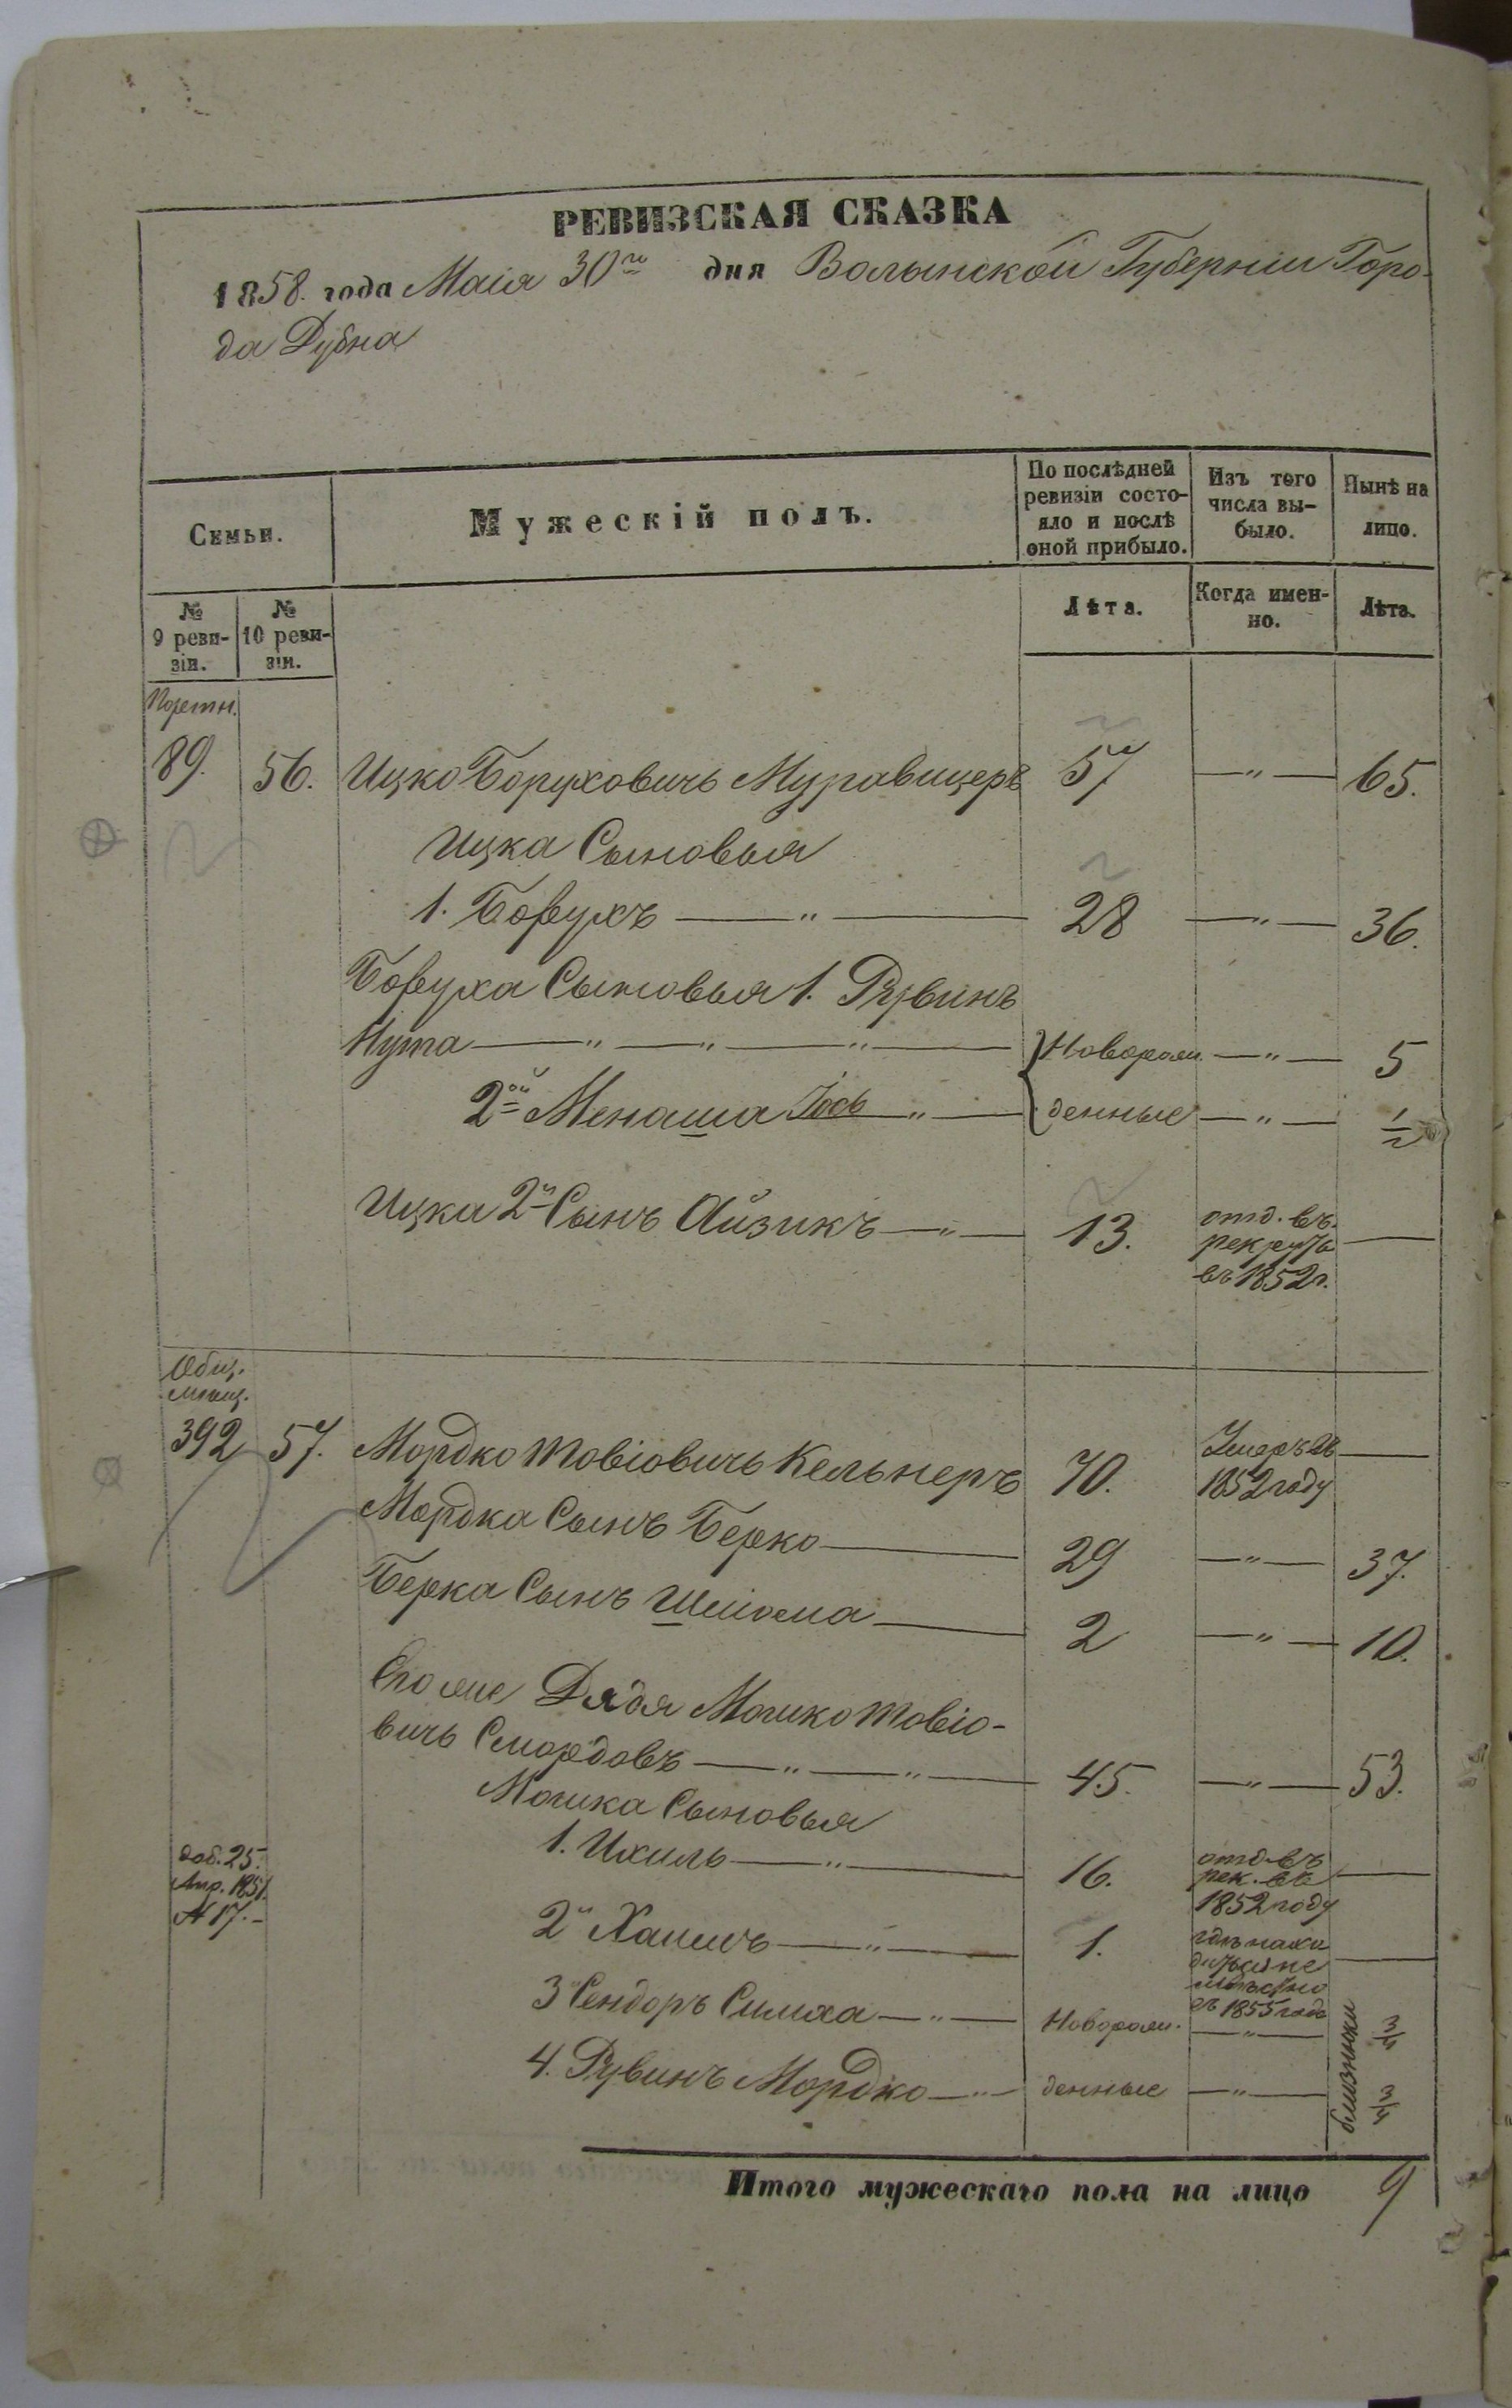 РЕВИЗСКАЯ СКАЗКА
1858. года Маія 30го дня Волынской Губерніи Горо-
да Дубна
Семьи.
Мужескій полъ.
По послѣдней ревизіи состо-яло и послѣ оной прибыло.
Изъ того числа вы-было.
Нынѣ на лицо.
№ 9 реви-зіи.
№ 10 реви-зіи.
Лѣта.
Когда имен-но.
Лѣта.
89. 56. Ицко Боруховичъ Муравицеръ 57 — " — 65.
Ицка Сыновья
1. Борухъ — " — 28 — " — 36.
Боруха Сыновья 1. Рувинъ
Нута — " — " — " — Новорож- — " — 5
2ой Менаша Іось " — денные — " — 1/2
Ицка 2й Сынъ Айзикъ — " — 13. отд. въ рекруты въ 1852 г. —
Общ.
мѣщ.
392 57. Мордко Товіовичъ Кельнеръ 70. Умеръ въ 1852 году —
Мордка Сынъ Берко — 29 — " — 37.
Берка Сынъ Шліома — 2 — " — 10.
Его же Дядя Мошко Товіо-
вичъ Смордовъ — " — " — 45. — " — 53.
Мошка Сыновья
1. Ихиль — " — 16. отд. въ рек. въ 1852 году —
доб. 25.
Апр. 1851.
№ 17. –
2й Хаимъ — " — 1. гдѣ нахо дитъся не извѣстно съ 1855 года —
3й Сендоръ Симха — " — Новорож. — " — 3/4
4. Рувинъ Мордко — " — денные — " — 3/4
близнюки
Итого мужескаго пола на лицо 9